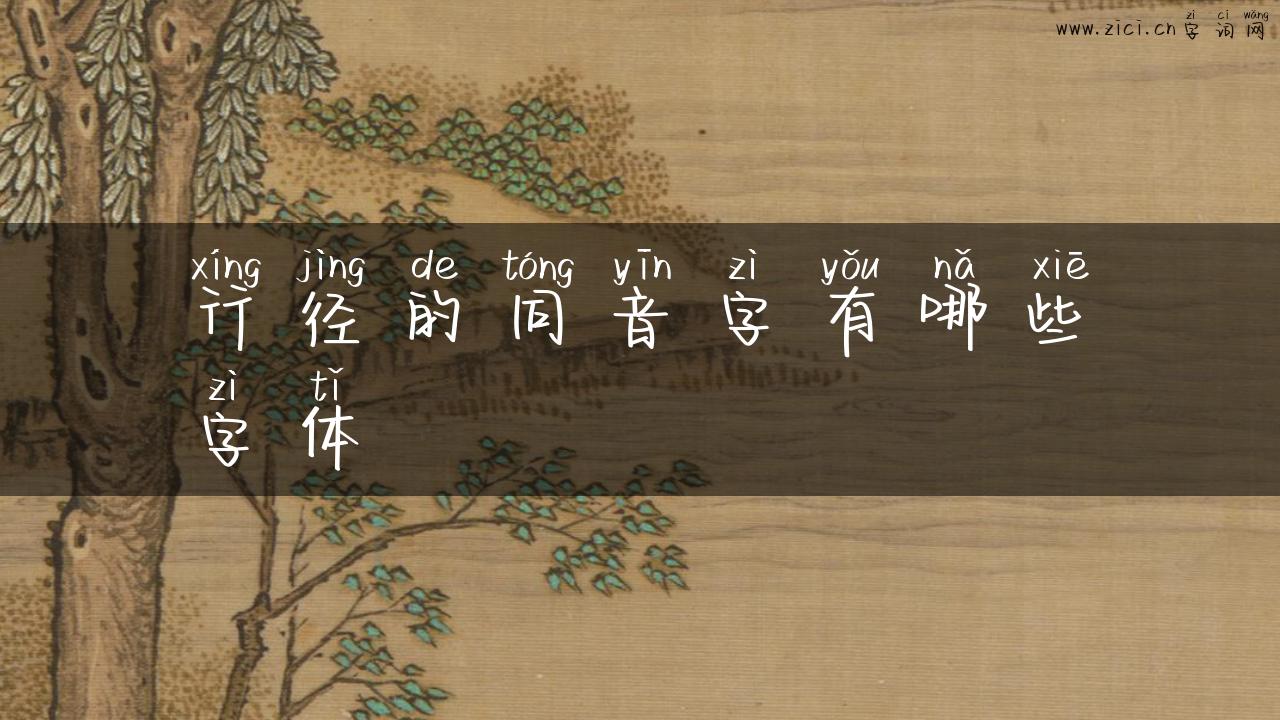 zì cí wǎng
www.zici.cn 字词网
xíng jìng de tóng yīn zì yǒu nǎ xiē
行径的同音字有哪些
zì tǐ
字体